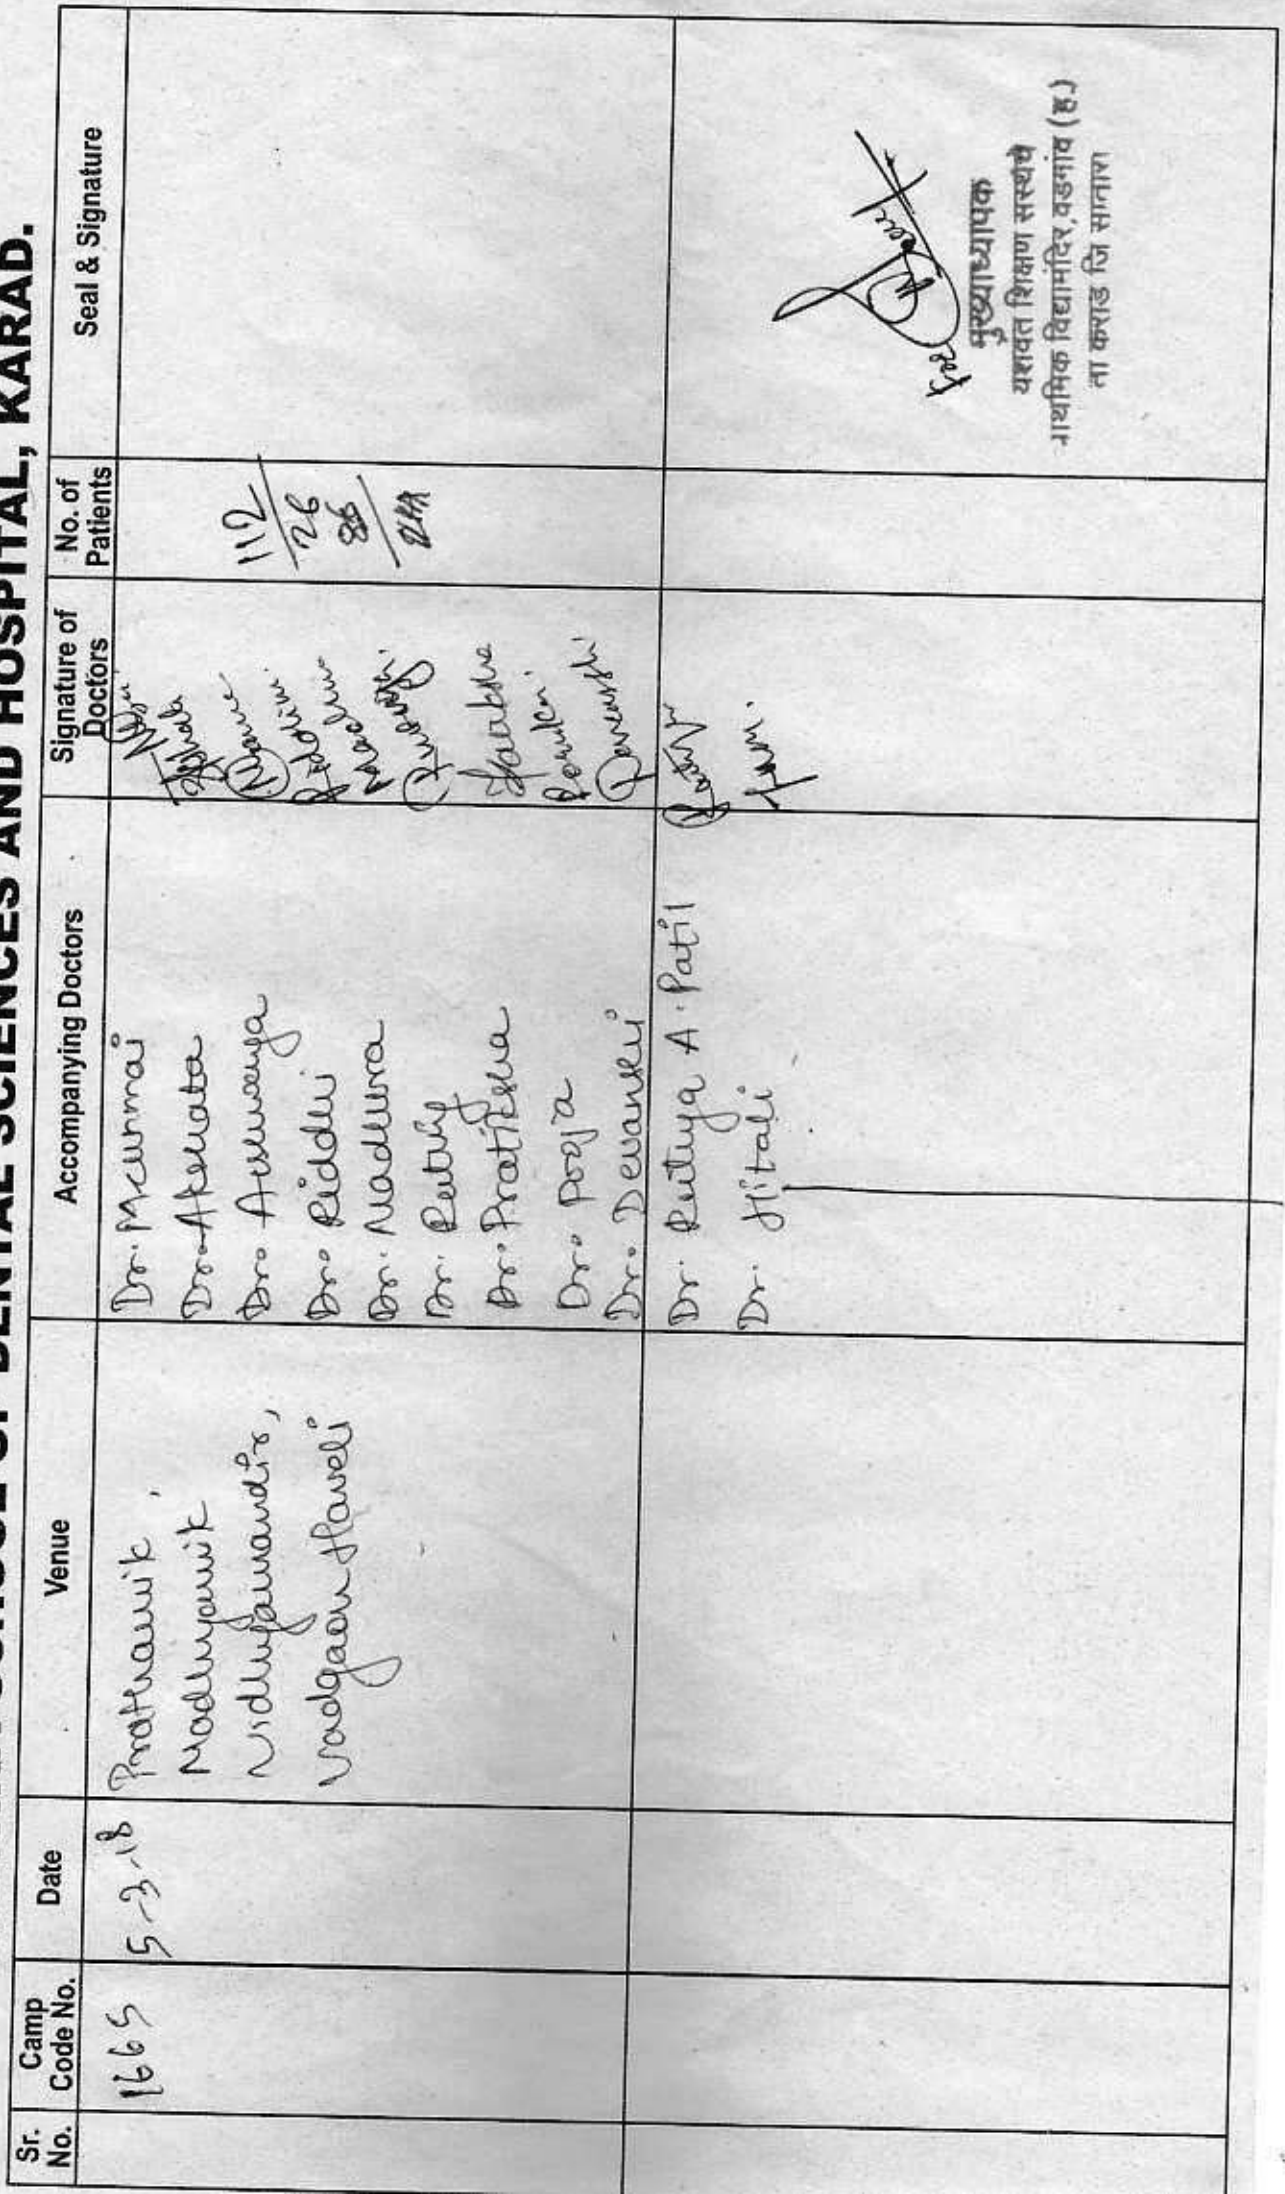 SCHOOL OF DENTAL SCIENCES AND HOSPITAL, KARAD.
Sr. No.
Camp Code No.
Date
Venue
Accompanying Doctors
Signature of Doctors
No. of Patients
Seal & Signature
1665
5-3-18
Prathamik,
Madhyamik
Vidhyamandir,
Vadgaon Haveli
Dr. Mrunmai
Dr. Akshata
Dr. Aishwarya
Dr. Riddhi
Dr. Madhura
Dr. Rutuj
Dr. Pratiksha
Dr. Pooja
Dr. Devanshi
Dr. Rutuja A. Patil
Dr. Hitali
Madhura
Devanshi
112
26
86
For
मुख्याध्यापक
यशवंत शिक्षण संस्थेचे
माध्यमिक विद्यामंदिर, वडगांव (ह)
ता कराड जि सातारा